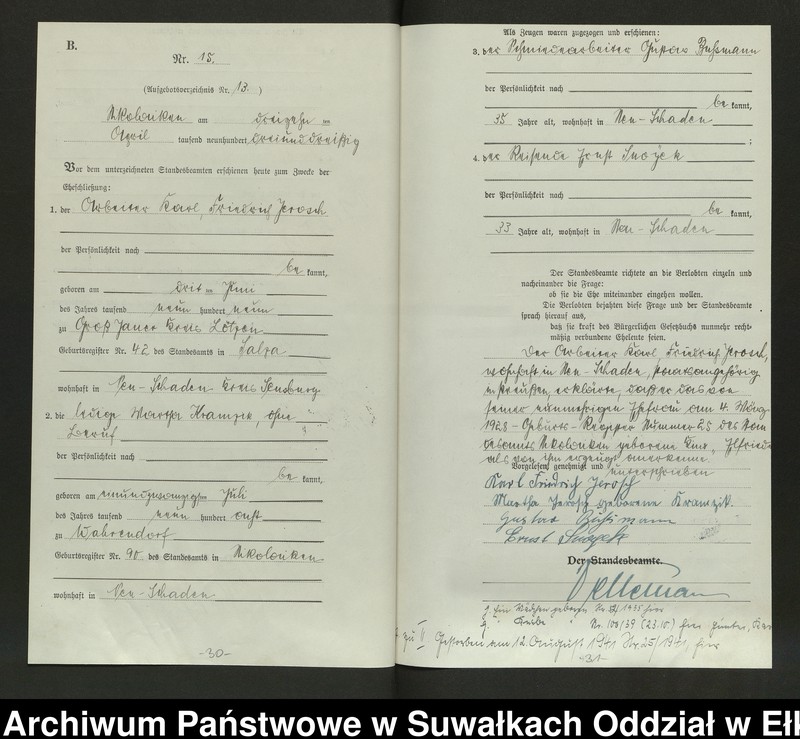 B.
Nr. 15.
(Aufgebotsverzeichnis Nr. 13.)
Nikolaiken am dreizehn ten
April tausend neunhundert dreiunddreißig
Vor dem unterzeichneten Standesbeamten erschienen heute zum Zwecke der
Eheschließung:
1. der Arbeiter Karl, Friedrich Jerosch
der Persönlichkeit nach
be kannt,
geboren am drit ten Juni
des Jahres tausend neun hundert neun
zu Groß Jauer Kreis Lötzen
Geburtsregister Nr. 42 des Standesamts in Salza
wohnhaft in Neu-Schaden Kreis Sensburg
2. die ledige Martha Kramzik, ohne
Beruf
der Persönlichkeit nach
be kannt,
geboren am neunundzwanzigsten Juli
des Jahres tausend neun hundert acht
zu Wahrendorf
Geburtsregister Nr. 90 des Standesamts in Nikolaiken
wohnhaft in Neu-Schaden
-30-
Als Zeugen waren zugezogen und erschienen:
3. der Schmiedearbeiter Gustav Bußmann
der Persönlichkeit nach
be kannt,
35 Jahre alt, wohnhaft in Neu-Schaden
;
4. der Reisende Ernst
der Persönlichkeit nach
be kannt,
33 Jahre alt, wohnhaft in Neu-Schaden
Der Standesbeamte richtete an die Verlobten einzeln und
nacheinander die Frage:
ob sie die Ehe miteinander eingehen wollen.
Die Verlobten bejahten diese Frage und der Standesbeamte
sprach hierauf aus,
daß sie kraft des Bürgerlichen Gesetzbuchs nunmehr recht-
mäßig verbundene Eheleute seien.
Der Arbeiter Karl, Friedrich Jerosch,
wohnhaft in Neu-Schaden, staatsangehörig
in Preußen, erklärte, daß er das von
seiner nunmehrigen Ehefrau am 4. März
1928 - Geburts-Register Nummer 25 des Stan
desamts Nikolaiken geborene Kind, Elfriede
als von ihm erzeugt anerkenne.
Vorgelesen, genehmigt und unterschrieben
Karl Friedrich Jerosch
Martha Jerosch geborene Kramzik.
Gustav Bußmann
Ernst
Der Standesbeamte.
1 Ein Mädchen geboren Nr. 1935 hier
2 " Knabe " Nr. 108/39 (23.10)
zu II Gestorben am 12. August 1941 Nr. 25/1941, hier
-31-
Archiwum Państwowe w Suwałkach Oddział w Ełk